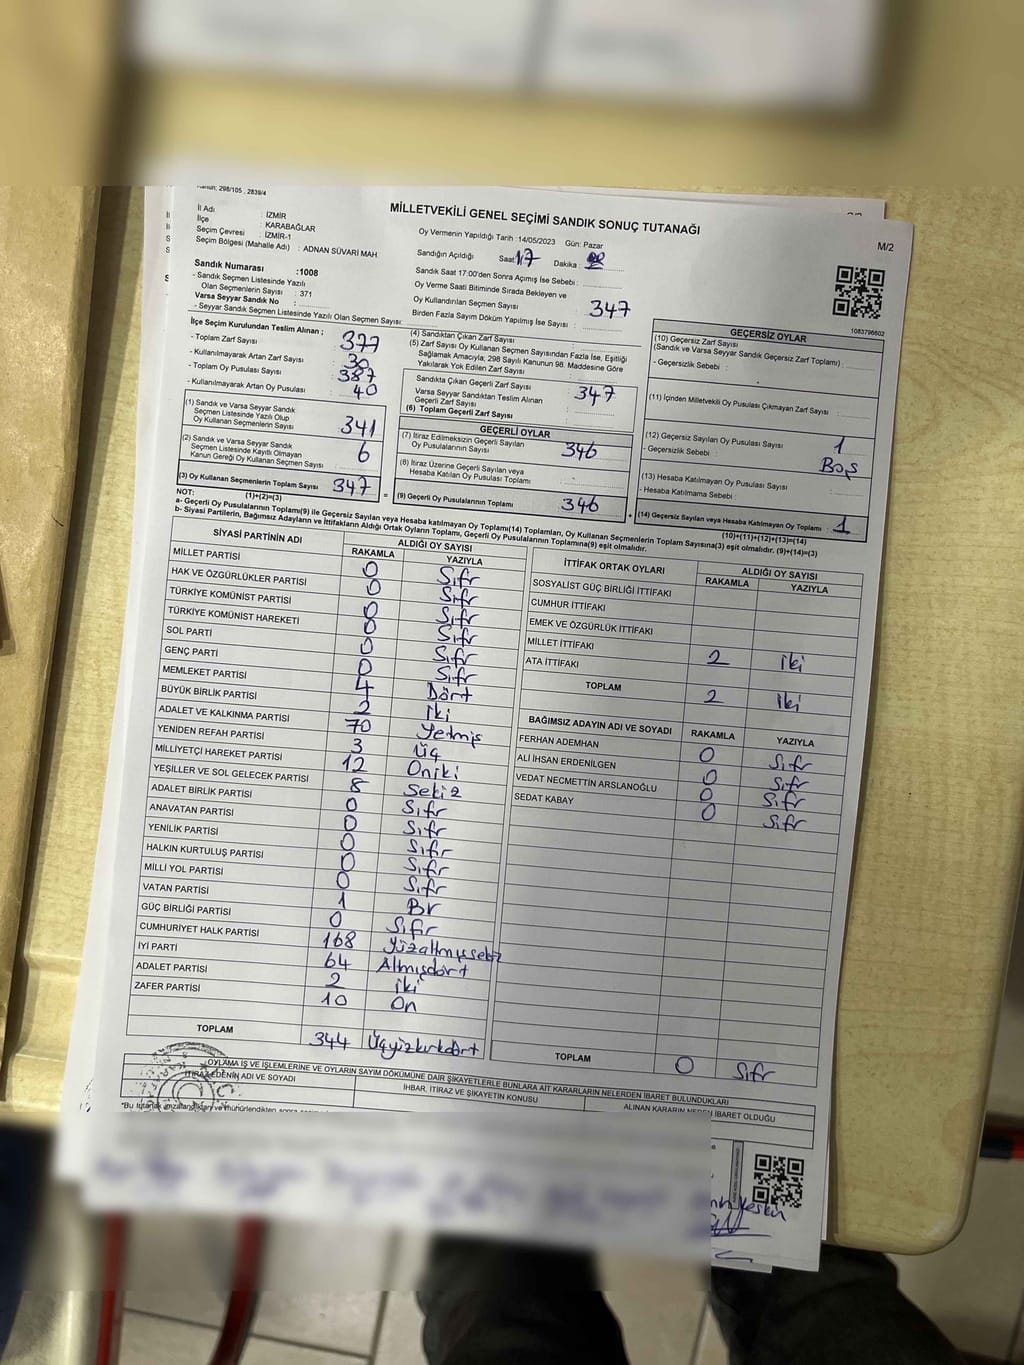 Kanun; 298/105 , 2839/4
MİLLETVEKİLİ GENEL SEÇİMİ SANDIK SONUÇ TUTANAĞI
M/2
İl Adı : İZMİR
İlçe : KARABAĞLAR
Seçim Çevresi : İZMİR-1
Seçim Bölgesi (Mahalle Adı) : ADNAN SÜVARİ MAH.
Sandık Numarası :1008
- Sandık Seçmen Listesinde Yazılı
Olan Seçmenlerin Sayısı : 371
Varsa Seyyar Sandık No :
- Seyyar Sandık Seçmen Listesinde Yazılı Olan Seçmen Sayısı:
Oy Vermenin Yapıldığı Tarih :14/05/2023 Gün: Pazar
Sandığın Açıldığı Saat 17 Dakika :
Sandık Saat 17:00'den Sonra Açımış İse Sebebi :
Oy Verme Saati Bitiminde Sırada Bekleyen ve
Oy Kullandırılan Seçmen Sayısı : 347
Birden Fazla Sayım Döküm Yapılmış İse Sayısı :
1083796602
İlçe Seçim Kurulundan Teslim Alınan ;
- Toplam Zarf Sayısı : 377
- Kullanılmayarak Artan Zarf Sayısı : 30
- Toplam Oy Pusulası Sayısı : 387
- Kullanılmayarak Artan Oy Pusulası : 40
(1) Sandık ve Varsa Seyyar Sandık
Seçmen Listesinde Yazılı Olup
Oy Kullanan Seçmenlerin Sayısı : 341
(2) Sandık ve Varsa Seyyar Sandık
Seçmen Listesinde Kayıtlı Olmayan
Kanun Gereği Oy Kullanan Seçmen Sayısı : 6
(3) Oy Kullanan Seçmenlerin Toplam Sayısı : 347
(1)+(2)=(3)
(4) Sandıktan Çıkan Zarf Sayısı :
(5) Zarf Sayısı Oy Kullanan Seçmen Sayısından Fazla İse, Eşitliği
Sağlamak Amacıyla; 298 Sayılı Kanunun 98. Maddesine Göre
Yakılarak Yok Edilen Zarf Sayısı :
Sandıkta Çıkan Geçerli Zarf Sayısı : 347
Varsa Seyyar Sandıktan Teslim Alınan
Geçerli Zarf Sayısı :
(6) Toplam Geçerli Zarf Sayısı :
GEÇERLİ OYLAR
(7) İtiraz Edilmeksizin Geçerli Sayılan
Oy Pusulalarının Sayısı : 346
(8) İtiraz Üzerine Geçerli Sayılan veya
Hesaba Katılan Oy Pusulası Toplamı :
= (9) Geçerli Oy Pusulalarının Toplamı : 346
GEÇERSİZ OYLAR
(10) Geçersiz Zarf Sayısı
(Sandık ve Varsa Seyyar Sandık Geçersiz Zarf Toplamı) :
- Geçersizlik Sebebi :
(11) İçinden Milletvekili Oy Pusulası Çıkmayan Zarf Sayısı :
(12) Geçersiz Sayılan Oy Pusulası Sayısı : 1
- Geçersizlik Sebebi : Boş
(13) Hesaba Katılmayan Oy Pusulası Sayısı :
- Hesaba Katılmama Sebebi :
+ (14) Geçersiz Sayılan veya Hesaba Katılmayan Oy Toplamı : 1
(10)+(11)+(12)+(13)=(14)
NOT:
a- Geçerli Oy Pusulalarının Toplamı(9) ile Geçersiz Sayılan veya Hesaba katılmayan Oy Toplamı(14) Toplamları, Oy Kullanan Seçmenlerin Toplam Sayısına(3) eşit olmalıdır. (9)+(14)=(3)
b- Siyasi Partilerin, Bağımsız Adayların ve İttifakların Aldığı Ortak Oyların Toplamı, Geçerli Oy Pusulalarının Toplamına(9) eşit olmalıdır.
SİYASİ PARTİNİN ADI ALDIĞI OY SAYISI
RAKAMLA YAZIYLA
MİLLET PARTİSİ 0 Sıfır
HAK VE ÖZGÜRLÜKLER PARTİSİ 0 Sıfır
TÜRKİYE KOMÜNİST PARTİSİ 0 Sıfır
TÜRKİYE KOMÜNİST HAREKETİ 0 Sıfır
SOL PARTİ 0 Sıfır
GENÇ PARTİ 0 Sıfır
MEMLEKET PARTİSİ 4 Dört
BÜYÜK BİRLİK PARTİSİ 2 iki
ADALET VE KALKINMA PARTİSİ 70 Yetmiş
YENİDEN REFAH PARTİSİ 3 Üç
MİLLİYETÇİ HAREKET PARTİSİ 12 Oniki
YEŞİLLER VE SOL GELECEK PARTİSİ 8 Sekiz
ADALET BİRLİK PARTİSİ 0 Sıfır
ANAVATAN PARTİSİ 0 Sıfır
YENİLİK PARTİSİ 0 Sıfır
HALKIN KURTULUŞ PARTİSİ 0 Sıfır
MİLLİ YOL PARTİSİ 0 Sıfır
VATAN PARTİSİ 1 Bir
GÜÇ BİRLİĞİ PARTİSİ 0 Sıfır
CUMHURİYET HALK PARTİSİ 168 Yüzaltmışsekiz
İYİ PARTİ 64 Altmışdört
ADALET PARTİSİ 2 iki
ZAFER PARTİSİ 10 On
TOPLAM 344 Üçyüzkırkdört
İTTİFAK ORTAK OYLARI ALDIĞI OY SAYISI
RAKAMLA YAZIYLA
SOSYALİST GÜÇ BİRLİĞİ İTTİFAKI
CUMHUR İTTİFAKI
EMEK VE ÖZGÜRLÜK İTTİFAKI
MİLLET İTTİFAKI 2 iki
ATA İTTİFAKI
TOPLAM 2 iki
BAĞIMSIZ ADAYIN ADI VE SOYADI RAKAMLA YAZIYLA
FERHAN ADEMHAN 0 Sıfır
ALİ İHSAN ERDENİLGEN 0 Sıfır
VEDAT NECMETTİN ARSLANOĞLU 0 Sıfır
SEDAT KABAY 0 Sıfır
TOPLAM 0 Sıfır
OYLAMA İŞ VE İŞLEMLERİNE VE OYLARIN SAYIM DÖKÜMÜNE DAİR ŞİKAYETLERLE BUNLARA AİT KARARLARIN NELERDEN İBARET BULUNDUKLARI
İTİRAZ EDENİN ADI VE SOYADI
İHBAR, İTİRAZ VE ŞİKAYETİN KONUSU
ALINAN KARARIN NEDEN İBARET OLDUĞU
*Bu tutanak imzalandıktan ve mühürlendikten sonra